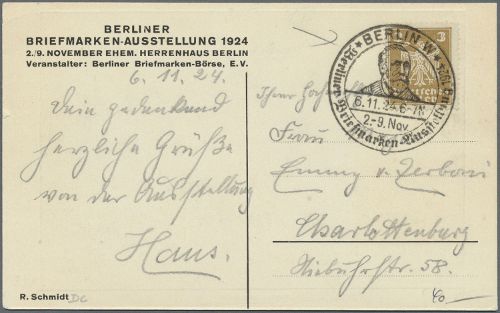 BERLINER
BRIEFMARKEN-AUSSTELLUNG 1924
2./9. NOVEMBER EHEM. HERRENHAUS BERLIN
Veranstalter: Berliner Briefmarken-Börse, E.V.
6.11.24.
Dein gedenkend
herzliche Grüße
von der Ausstellung
Hans.
R. Schmidt
3
★ BERLIN W ★
6.11.24 6-7N
2-9. Nov.
Berliner Briefmarken-Ausstellung 1924
Ihrer
Frau
Emmy v. Zerboni
Charlottenburg
Niebuhrstr. 58.
40.—